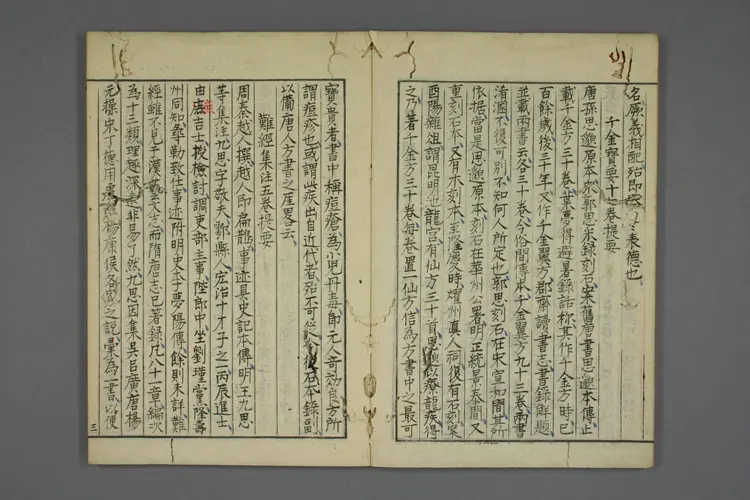 名厥義相配殆即 表德也
千金寶要十七卷提要
唐孫思邈原本宋郭思采錄刻石案舊唐書思邈本傳止
載千金方三十卷葉夢得避暑錄話稱其作千金方時已
百餘歲後三十年又作千金翼方郡齋讀書志書錄解題
並載兩書各三十卷今俗間傳本千金翼方九十三卷兩書
淆溷不復可別不知何人所定也郭思刻石在宋宣和間其所
依据當是思邈原本刻石在華州公署明正統景泰間又
重刻石本又有木刻本至隆慶時燿州真人祠復有石刻案
酉陽雜俎謂昆明池龍宮有仙方三十首思邈以療龍疾得
之乃著千金方三十卷每卷置一仙方信為方書中之最可
寶貴者書中稱痘瘡為小兒丹毒即元人奇効良方所
謂痘疹也或謂此疾出自近代者殆不可從今復石本錄副
以備唐人方書之厓畧云
難經集注五卷提要
周秦越人撰越人即扁鵲事迹具史記本傳明王九思
等集注九思字敬夫鄠縣人宏治十才子之一丙辰進士
由庶吉士授檢討調吏部主事陞郎中坐劉瑾黨降壽
州同知尋勒致仕事迹附明史李夢陽傳餘則未詳難
經雖不見于漢藝文志而隋唐志已著錄凡八十一章編次
為十三類理趣深遠非易了然九思因集吳呂廣唐楊
元操宋丁德用虞 楊康侯各家之說彙為一書以便
三